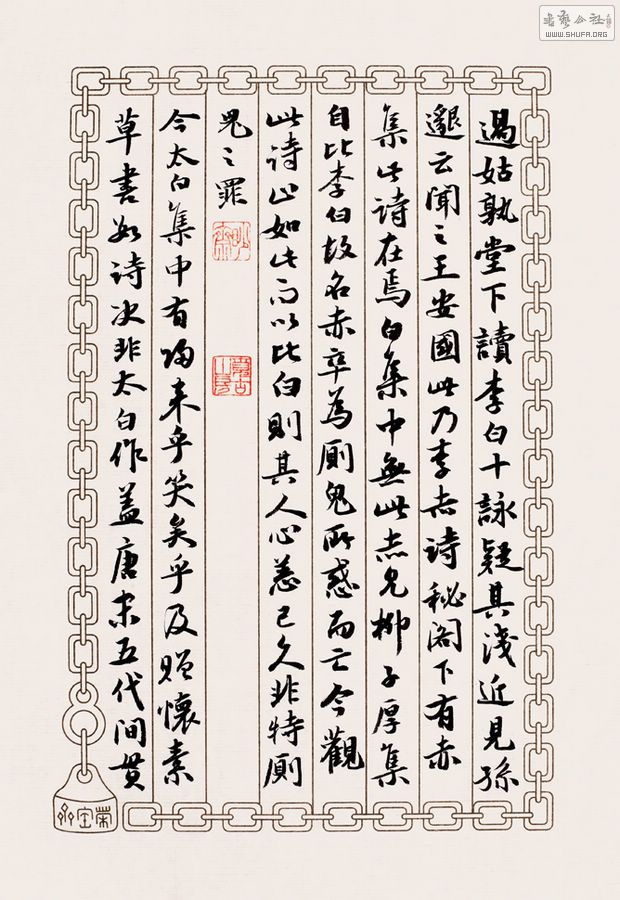 過姑孰堂下讀李白十詠疑其淺近見孫
邈云聞之王安國此乃李赤詩秘閣下有赤
集此詩在焉白集中無此赤見柳子厚集
自比李白故名赤卒為厠鬼所惑而亡今觀
此詩止如此而以比白則其人心恙已久非特厠
鬼之罪
今太白集中有歸来乎笑矣乎及贈懷素
草書数詩决非太白作盖唐末五代間貫
榮宝斋
書藝公社
WWW.SHUFA.ORG